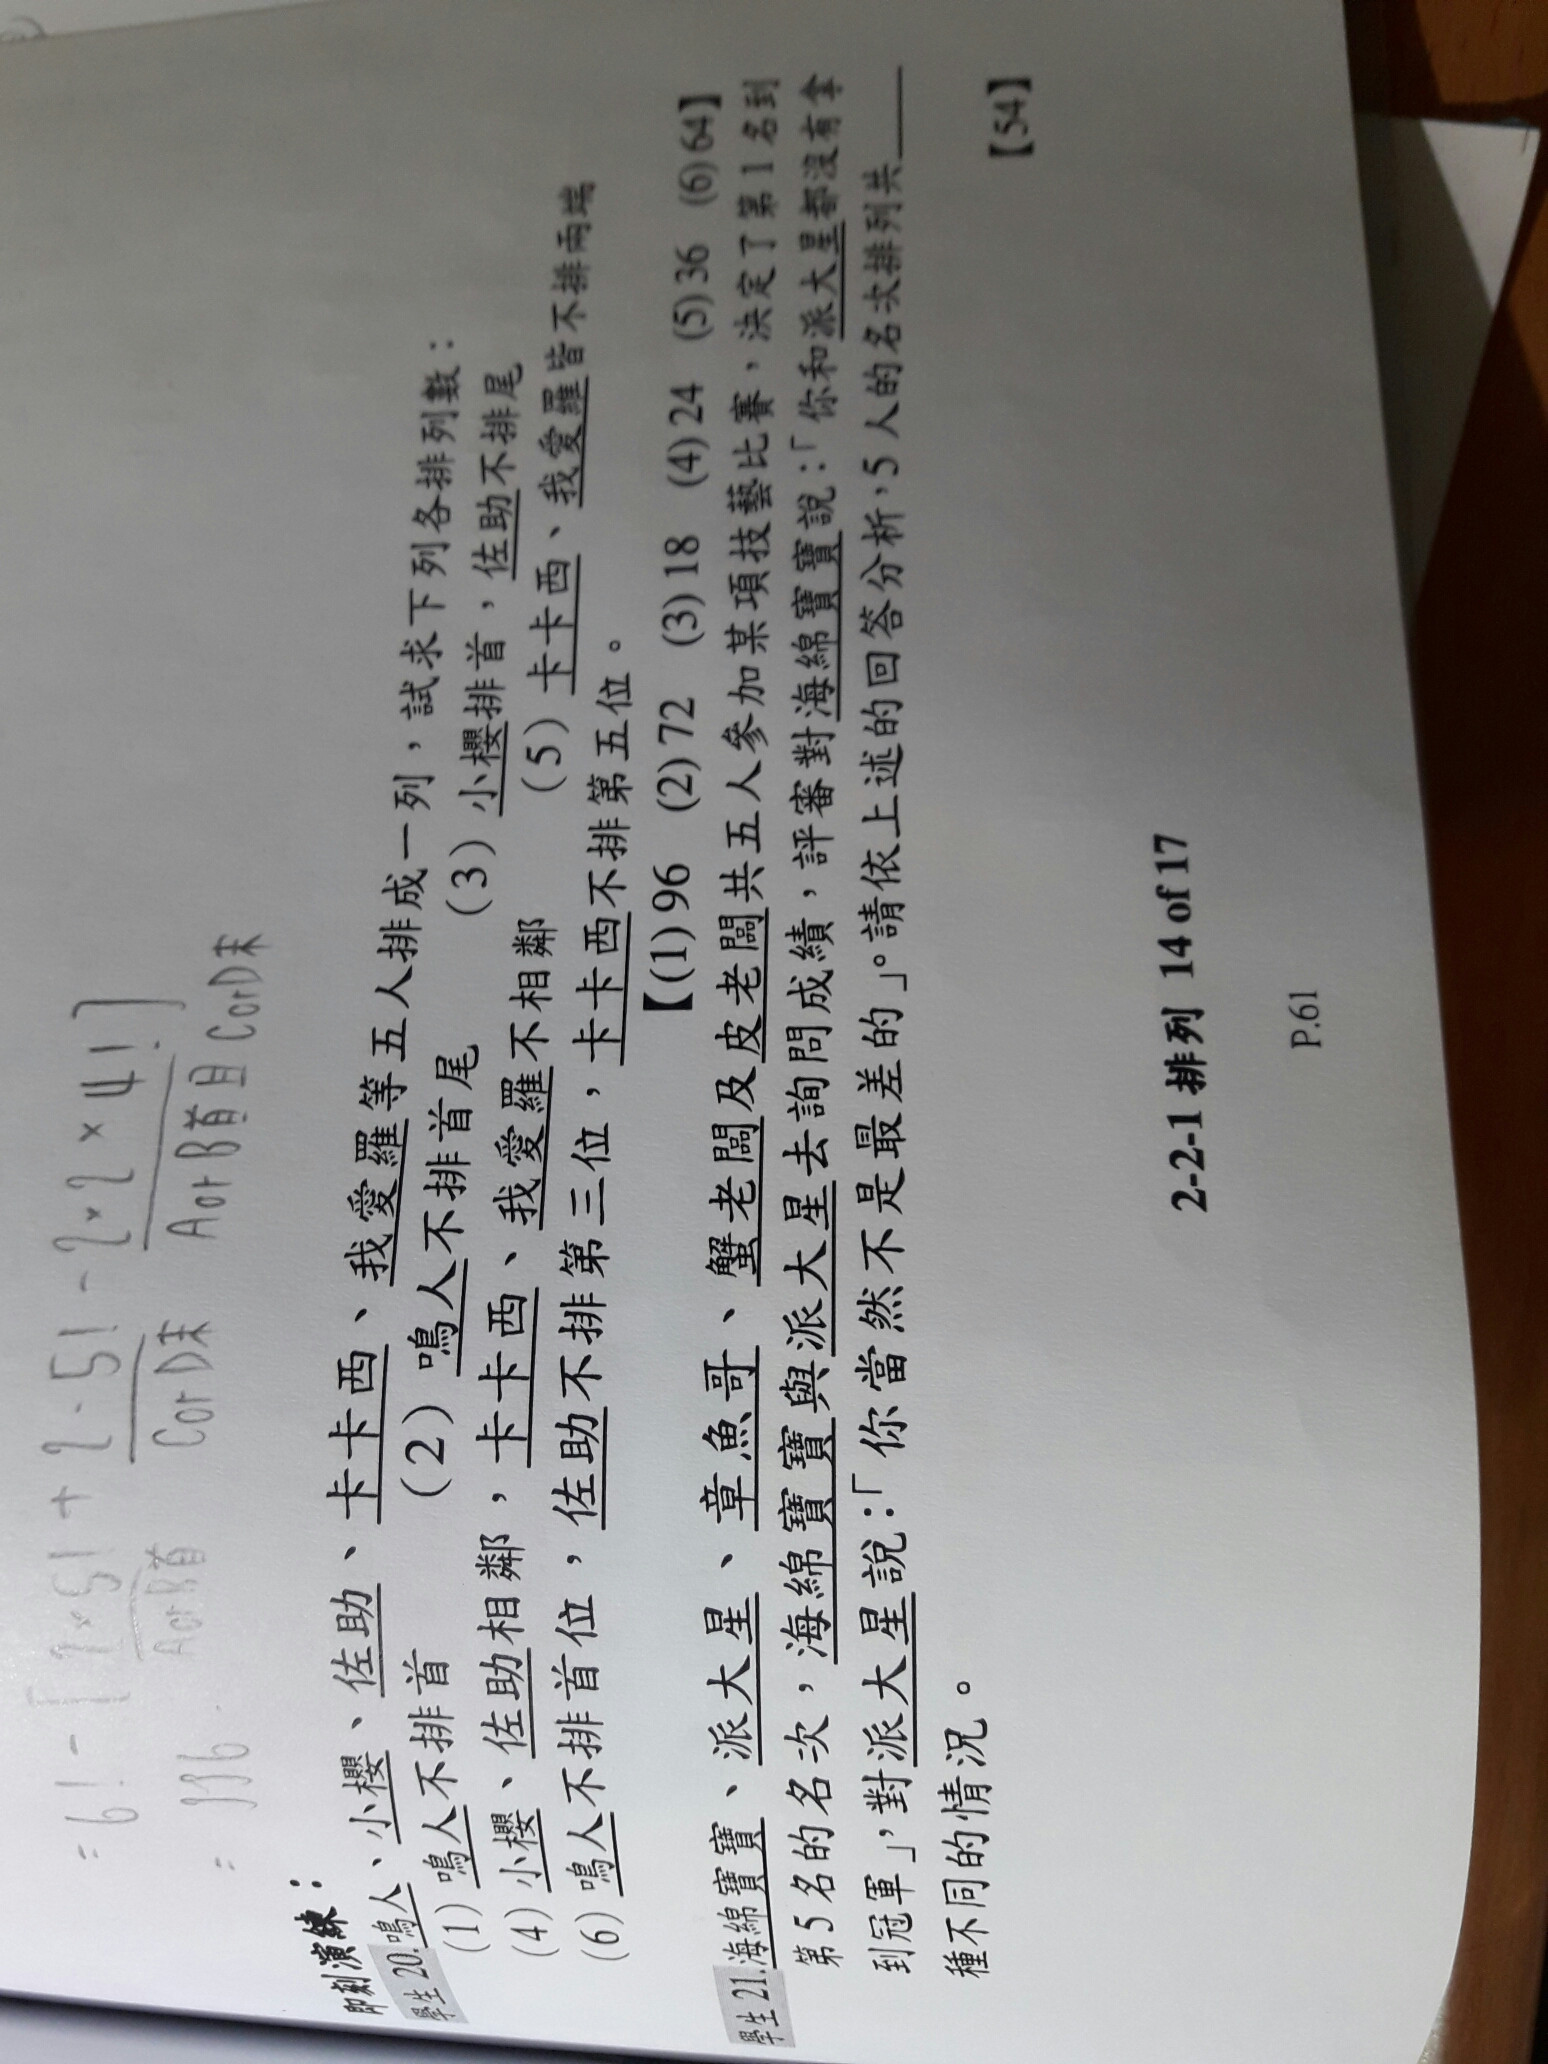 = 6! - [2×5! + 2·5! - 2×2×4!]
AorB首 CorD末 AorB首且CorD末
= 336
即刻演練：
學生 20.鳴人、小櫻、佐助、卡卡西、我愛羅等五人排成一列，試求下列各排列數：
(1)鳴人不排首 (2)鳴人不排首尾 (3)小櫻排首，佐助不排尾
(4)小櫻、佐助相鄰，卡卡西、我愛羅不相鄰 (5)卡卡西、我愛羅皆不排兩端
(6)鳴人不排首位，佐助不排第三位，卡卡西不排第五位。
【(1)96 (2)72 (3)18 (4)24 (5)36 (6)64】
學生 21.海綿寶寶、派大星、章魚哥、蟹老闆及皮老闆共五人參加某項技藝比賽，決定了第1名到
第5名的名次，海綿寶寶與派大星去詢問成績，評審對海綿寶寶說：「你和派大星都沒有拿
到冠軍」，對派大星說：「你當然不是最差的」。請依上述的回答分析，5人的名次排列共____
種不同的情況。
【54】
2-2-1 排列 14 of 17
P.61